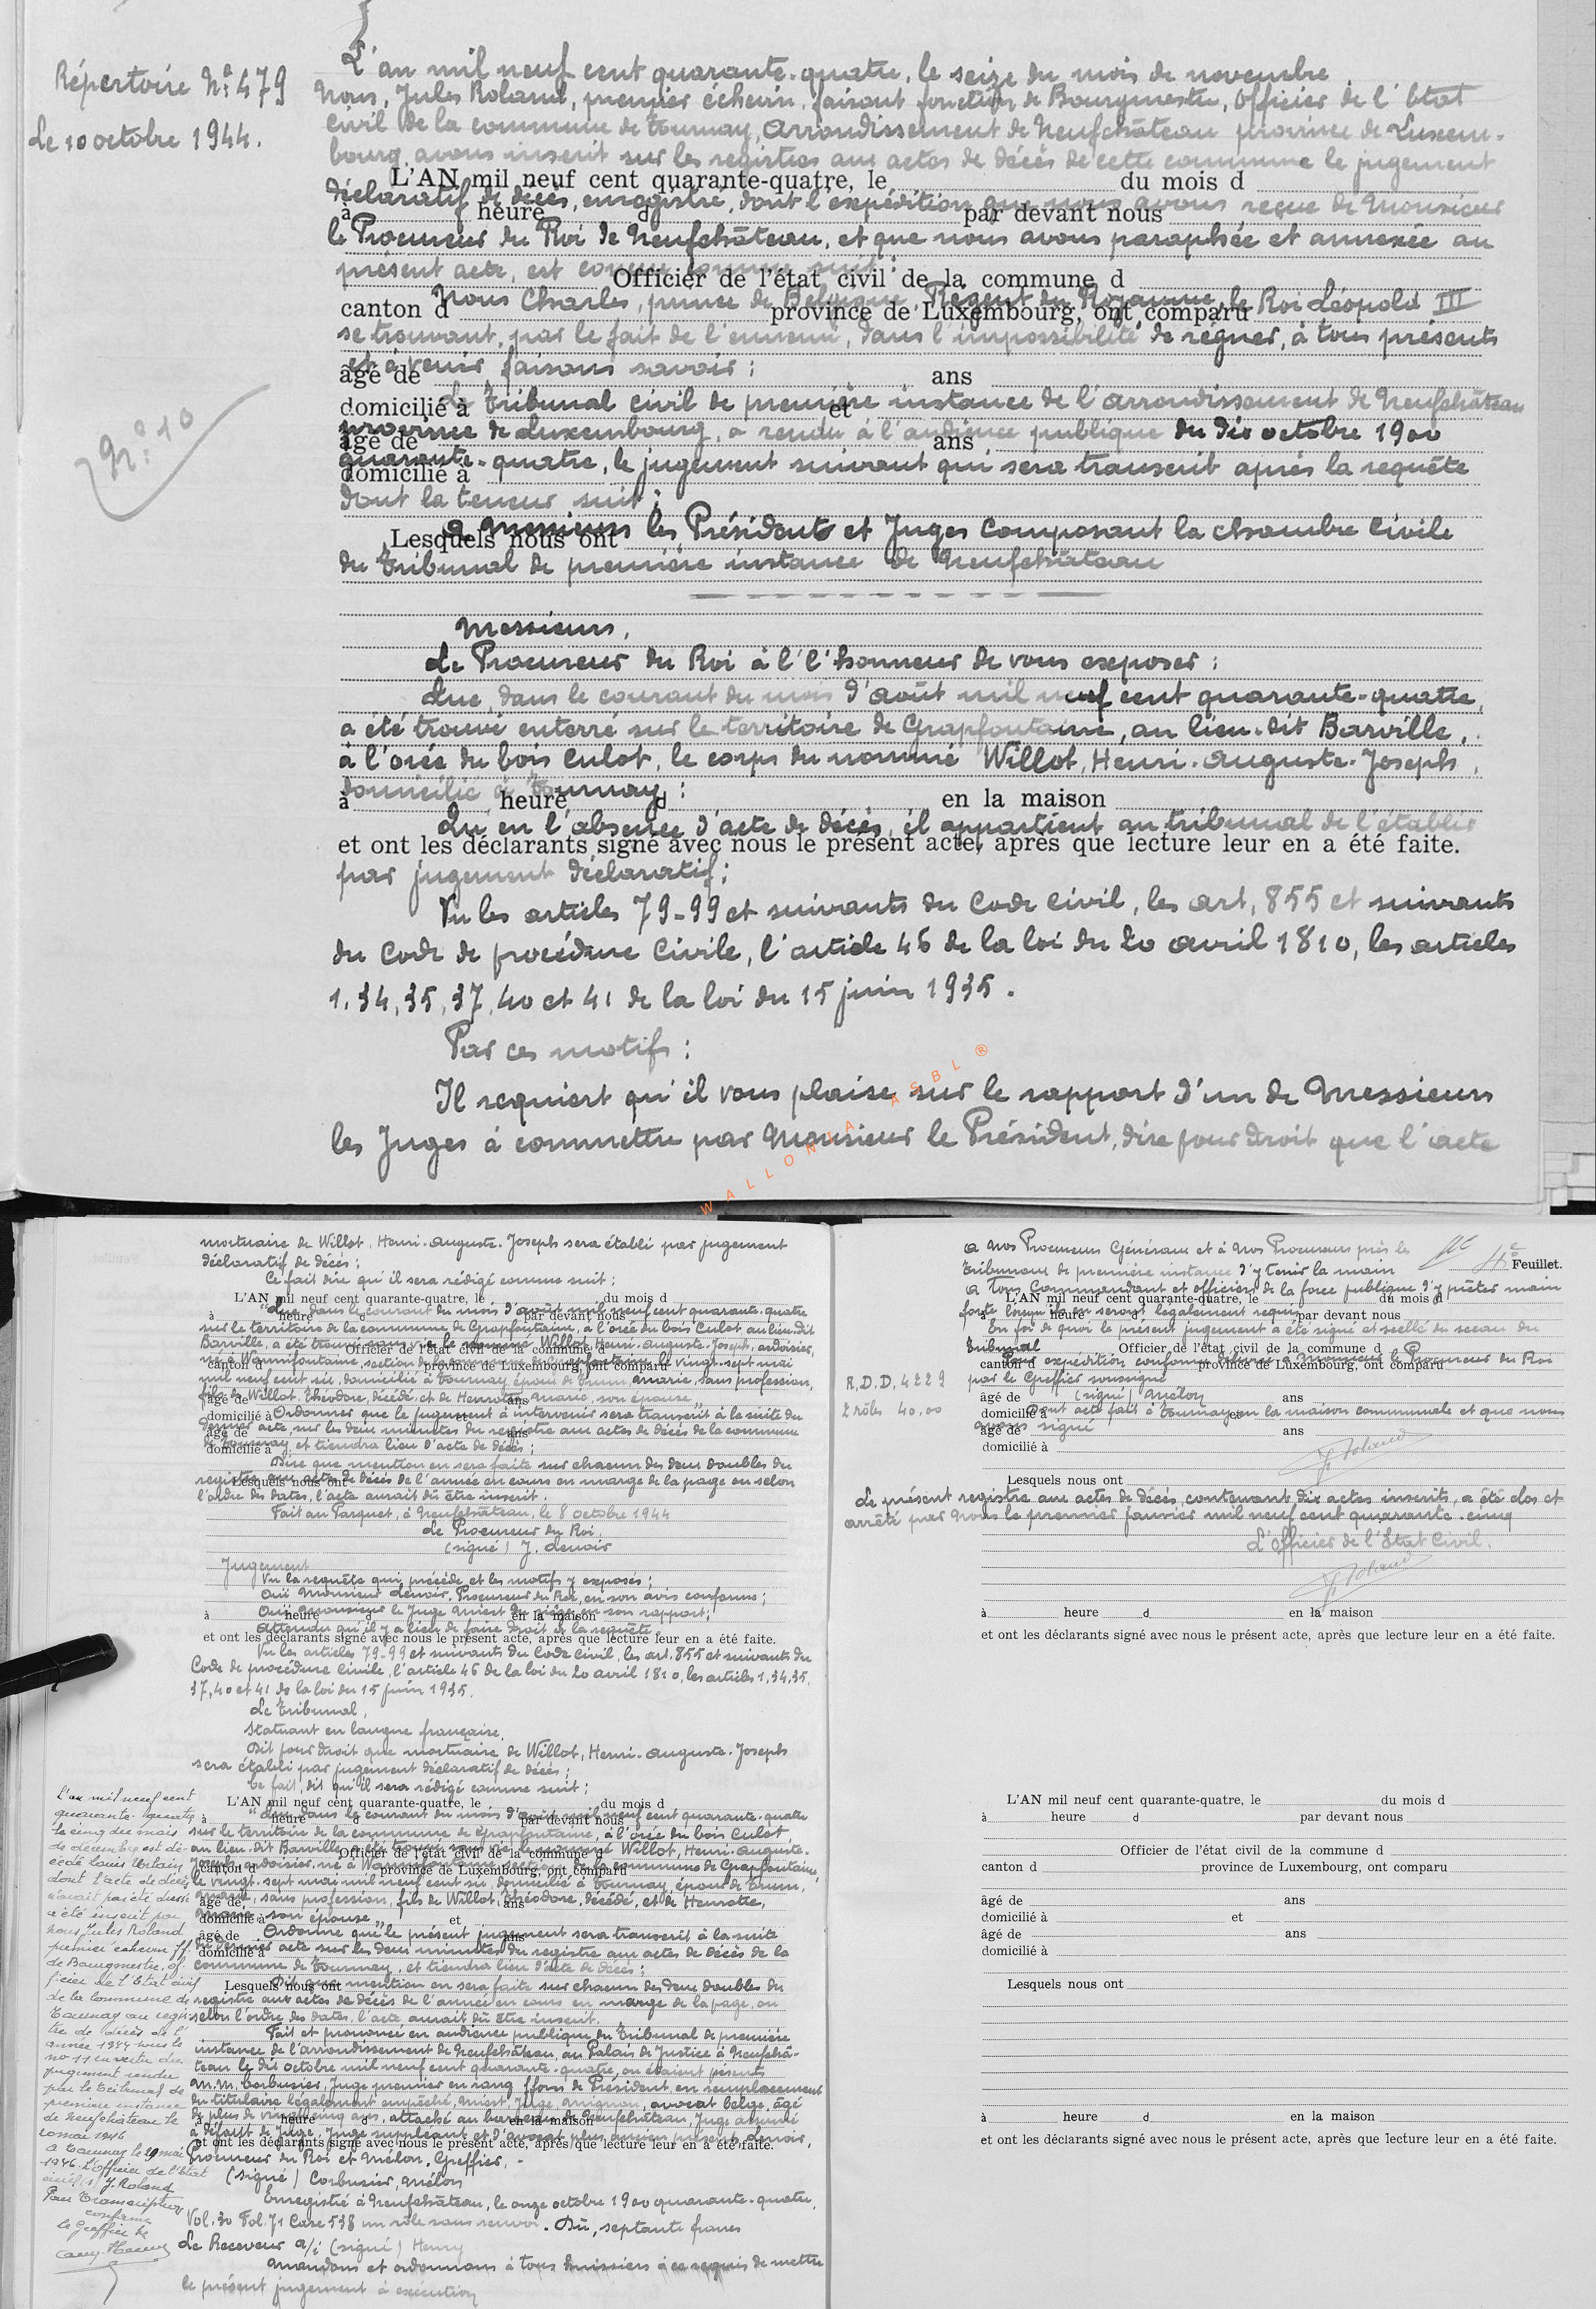 Répertoire N° 479
Le 10 octobre 1944.
N° 10
L'an mil neuf cent quarante-quatre, le seize du mois de novembre
Nous, Jules Roland, premier échevin, faisant fonction de Bourgmestre, Officier de l'état
civil de la commune de Tournay, Arrondissement de Neufchâteau province de Luxem-
bourg, avons inscrit sur les registres aux actes de décès de cette commune le jugement
L'AN mil neuf cent quarante-quatre, le du mois d
déclaratif de décès, enregistré, dont l'expédition que nous avons reçue de Monsieur
à heure d par devant nous
le Procureur du Roi de Neufchâteau, et que nous avons paraphée et annexée au
présent acte, est conçu comme suit :
Officier de l'état civil de la commune d
Nous Charles, prince de Belgique, Régent du Royaume, le Roi Léopold III
canton d province de Luxembourg, ont comparu
se trouvant, par le fait de l'ennemi, dans l'impossibilité de régner, à tous présents
et à venir faisons savoir :
âgé de ans
Le Tribunal civil de première instance de l'arrondissement de Neufchâteau
domicilié à et
province de Luxembourg, a rendu à l'audience publique du dix octobre 1900
âgé de ans
quarante-quatre, le jugement suivant qui sera transcrit après la requête
domicilié à
dont la teneur suit :
A Messieurs les Présidents et Juges composant la chambre Civile
Lesquels nous ont
du Tribunal de première instance de Neufchâteau
Messieurs,
Le Procureur du Roi à l'l'honneur de vous exposer :
Que, dans le courant du mois d'août mil neuf cent quarante-quatre,
a été trouvé enterré sur le territoire de Grapfontaine, au lieu-dit Barville,
à l'orée du bois Culot, le corps du nommé Willot, Henri-Auguste-Joseph,
domicilié à Tournay ;
à heure d en la maison
Qu'en l'absence d'acte de décès, il appartient au tribunal de l'établir
et ont les déclarants signé avec nous le présent acte, après que lecture leur en a été faite.
par jugement déclaratif ;
Vu les articles 79-99 et suivants du Code Civil, les art. 855 et suivants
du Code de procédure Civile, l'article 46 de la loi du 20 avril 1810, les articles
1, 34, 35, 37, 40 et 41 de la loi du 15 juin 1935.
Par ces motifs :
Il requiert qu'il vous plaise sur le rapport d'un de Messieurs
les Juges à commettre par Monsieur le Président, dire pour droit que l'acte
WALLONIA ASBL ®
mortuaire de Willot, Henri-Auguste-Joseph sera établi par jugement
déclaratif de décès ;
Ce fait dire qu'il sera rédigé comme suit :
L'AN mil neuf cent quarante-quatre, le du mois d
"Que dans le courant du mois d'août mil neuf cent quarante-quatre
à heure d par devant nous
sur le territoire de la commune de Grapfontaine, à l'orée du bois Culot au lieu-dit
Barville, a été trouvé sans vie le nommé Willot, Henri-Auguste-Joseph, ardoisier,
Officier de l'état civil de la commune d
né à Warmifontaine, section de la commune de Grapfontaine, le vingt-sept mai
canton d province de Luxembourg, ont comparu
mil neuf cent six, domicilié à Tournay, époux de Brun, Marie, sans profession,
fils de Willot, Théodore, décédé, et de Henrotte, Marie, son épouse"
âgé de ans
Ordonner que le jugement à intervenir sera transcrit à la suite du
domicilié à et
dernier acte, sur les deux minutes du registre aux actes de décès de la commune
âgé de ans
de Tournay et tiendra lieu d'acte de décès ;
domicilié à
Dire que mention en sera faite sur chacun des deux doubles du
registre aux actes de décès de l'année en cours en marge de la page ou selon
Lesquels nous ont
l'ordre des dates, l'acte aurait dû être inscrit.
Fait au Parquet, à Neufchâteau, le 8 octobre 1944
Le Procureur du Roi,
(signé) J. Lenoir
Jugement
Vu la requête qui précède et les motifs y exposés ;
Ouï Monsieur Lenoir, Procureur du Roi, en son avis conforme ;
Ouï Monsieur le Juge en son rapport ;
à heure d en la maison
Attendu qu'il y a lieu de faire droit à la requête
et ont les déclarants signé avec nous le présent acte, après que lecture leur en a été faite.
Vu les articles 79-99 et suivants du Code Civil, les art. 855 et suivants du
Code de procédure Civile, l'article 46 de la loi du 20 avril 1810, les articles 1, 34, 35,
37, 40 et 41 de la loi du 15 juin 1935.
Le Tribunal,
Statuant en langue française,
Dit pour droit que mortuaire de Willot, Henri-Auguste-Joseph
sera établi par jugement déclaratif de décès ;
Ce fait, dit qu'il sera rédigé comme suit :
L'AN mil neuf cent quarante-quatre, le du mois d
"Que dans le courant du mois d'août mil neuf cent quarante-quatre
à heure d par devant nous
sur le territoire de la commune de Grapfontaine, à l'orée du bois Culot,
au lieu-dit Barville, a été trouvé sans vie le nommé Willot, Henri-Auguste-
Officier de l'état civil de la commune d
Joseph, ardoisier, né à Warmifontaine, section de la commune de Grapfontaine,
canton d province de Luxembourg, ont comparu
le vingt-sept mai mil neuf cent six, domicilié à Tournay, époux de Brun,
Marie, sans profession, fils de Willot, Théodore, décédé, et de Henrotte,
âgé de ans
Marie, son épouse"
domicilié à et
Ordonne que le présent jugement sera transcrit à la suite
âgé de ans
du dernier acte sur les deux minutes du registre aux actes de décès de la
domicilié à
commune de Tournay, et tiendra lieu d'acte de décès ;
Dit que mention en sera faite sur chacun des deux doubles du
Lesquels nous ont
registre aux actes de décès de l'année en cours en marge de la page, ou
selon l'ordre des dates, l'acte aurait dû être inscrit.
Fait et prononcé en audience publique du Tribunal de première
instance de l'arrondissement de Neufchâteau, au Palais de Justice à Neufchâ-
teau le dix octobre mil neuf cent quarante-quatre, où étaient présents
M.M. Corbusier, Juge premier en rang ffons de Président, en remplacement
du titulaire légalement empêché, Juge, avocat belge, âgé
de plus de vingt-cinq ans, attaché au barreau de Neufchâteau, Juge assumé
à heure d en la maison
à défaut de Juge, Juge suppléant et d'avocat plus ancien présent, Lenoir,
et ont les déclarants signé avec nous le présent acte, après que lecture leur en a été faite.
Procureur du Roi et Mélon, Greffier,
(signé) Corbusier, Mélon
Enregistré à Neufchâteau, le onze octobre 1900 quarante-quatre,
Vol. 30 Fol. 71 Case 538 un rôle sans renvoi. Dû, septante francs
Le Receveur a/i (signé) Henry
Mandons et ordonnons à tous huissiers à ce requis de mettre
le présent jugement à exécution
L'an mil neuf cent
quarante-quatre
le cinq du mois
de décembre est dé-
cédé Louis
dont l'acte de décès
n'avait pas été dressé
a été inscrit par
nous Jules Roland
premier échevin ff.
de Bourgmestre, of-
ficier de l'Etat civil
de la Commune de
Tournay au regis-
tre de décès de l'
année 1944 sous le
no 11 en vertu du
jugement rendu
par le Tribunal de
première instance
de Neufchâteau le
10 mai 1946
A Tournay le 29 mai
1946. L'officier de l'Etat
civil (s) J. Roland
Pour Transcription
conforme
le Greffier
A Nos Procureurs Généraux et à Nos Procureurs près les
4e Feuillet.
Tribunaux de première instance d'y tenir la main
A tous Commandant et officiers de la force publique d'y prêter main
L'AN mil neuf cent quarante-quatre, le du mois d
forte lorsqu'ils en seront légalement requis
à heure d par devant nous
En foi de quoi le présent jugement a été signé et scellé du sceau du
Tribunal
Officier de l'état civil de la commune d
Pour expédition conforme délivrée à Monsieur le Procureur du Roi
canton d province de Luxembourg, ont comparu
par le Greffier soussigné
R.D.D. 4229
2 rôles 40,00
(signé) Mélon
âgé de ans
Dont acte fait à Tournay en la maison communale et que nous
domicilié à et
avons signé
âgé de ans
domicilié à
J. Roland
Lesquels nous ont
Le présent registre aux actes de décès, contenant dix actes inscrits, a été clos et
arrêté par Nous le premier janvier mil neuf cent quarante-cinq
L'Officier de l'Etat Civil.
J. Roland
à heure d en la maison
et ont les déclarants signé avec nous le présent acte, après que lecture leur en a été faite.
L'AN mil neuf cent quarante-quatre, le du mois d
à heure d par devant nous
Officier de l'état civil de la commune d
canton d province de Luxembourg, ont comparu
âgé de ans
domicilié à et
âgé de ans
domicilié à
Lesquels nous ont
à heure d en la maison
et ont les déclarants signé avec nous le présent acte, après que lecture leur en a été faite.